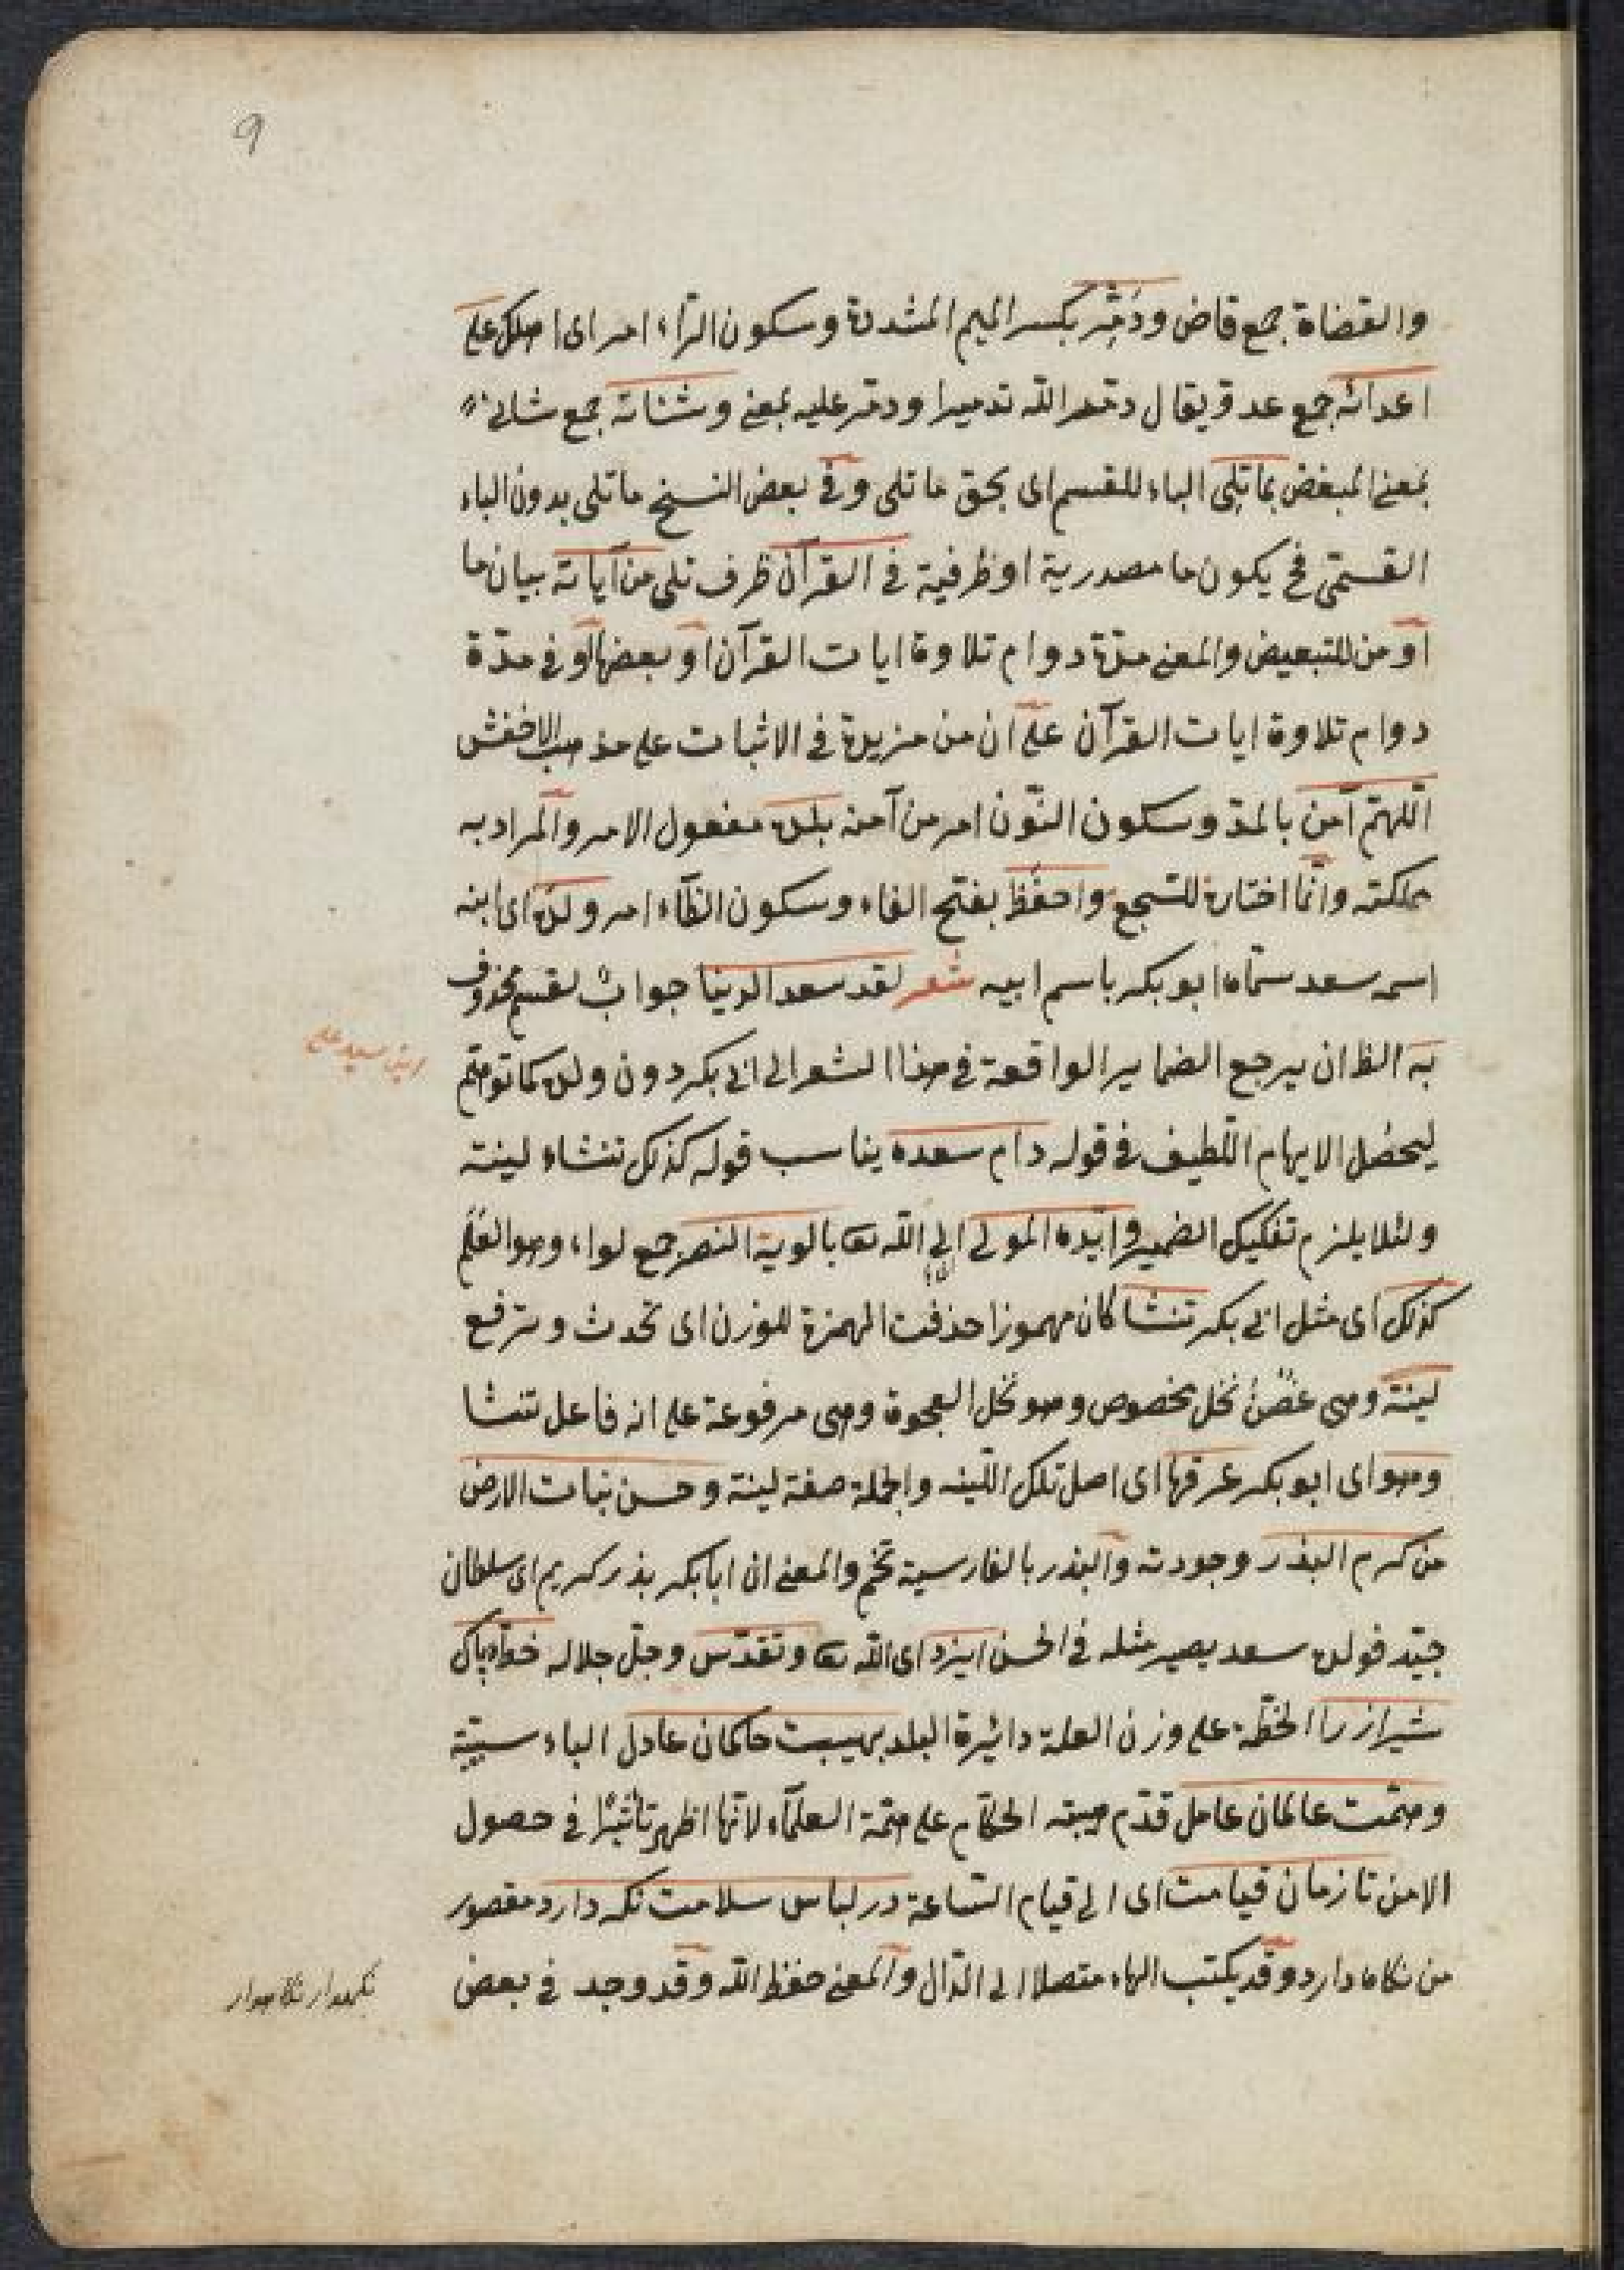 9
والقضاة جمع قاض ودَمِّر بكسر الميم المشددة وسكون الرّاء امر اى اهلك على
اعدائه جمع عدو يقال دمّره الله تدميرا ودمّر عليه بمعنى وشناته جمع شانئ
بمعنى المبغض بما تلى الباء للقسم اى بحق ما تلى وفى بعض النسخ ما تلى بدون الباء
القسمى فح يكون ما مصدرية او ظرفية فى القرآن ظرف تلى من آياته بيان ما
او من للتبعيض والمعنى مدة دوام تلاوة ايات القرآن او بعضها او فى مدّة
دوام تلاوة ايات القرآن على ان من مزيدة فى الاثبات على مذهب الاخفش
اللهمّ آمن بالمدّ وسكون النّون امر من آمنه بلده مفعول الامر والمراد به
مملكته وانّما اختاره للسّجع واحفَظ بفتح الفاء وسكون الظّاء امر ولده اى ابنه
اسمه سعد سمّاه ابو بكر باسم ابيه شعر لقد سعد الدنيا جواب لقسم محذوف
به الظ ان يرجع الضماير الواقعة فى هذا الشعر الى ابى بكر دون ولده كما توهّم
ابن سيد على
ليحصل الايهام اللّطيف فى قوله دام سعده يناسب قوله كذلك تنشاء لينة
ولئلا يلزم تفكيك الضمير وايّده المولى اى الله تعا بالوية النصر جمع لواء وهو العَلَم
كذلك اى مثل ابى بكر تنشا كان مهموزا حذفت الهمزة للوزن اى تحدث وترفع
لينة وهى غصن نخل مخصوص وهو نخل العجوة وهى مرفوعة على انه فاعل تنشا
وهو اى ابو بكر عرقها اى اصل تلك اللّينه والجملة صفة لينة وحسن نبات الارض
من كرم البذر وجودته والبذر بالفارسية تخم والمعنى ان ابا بكر بذر كريم اى سلطان
جيّد فولده سعد يصير مثله فى الحسن ايزد اى الله تعا وتقدّس وجلّ جلاله خطّه پاك
شيراز را الخطّة على وزن العلة دائرة البلد بهيبت حاكمان عادل الباء سببيّة
وهمّت عالمان عامل قدّم هيبة الحكّام على همّة العلمآء لانّها اظهر تأثيرًا فى حصول
الامن تا زمان قيامت اى الى قيام السّاعة در لباس سلامت نكه دارد مقصور
من نكاه دارد وقد يكتب الهاء متصلا الى الدّال والمعنى حفظ الله وقد وجد فى بعض
نكهدار نكاهدار